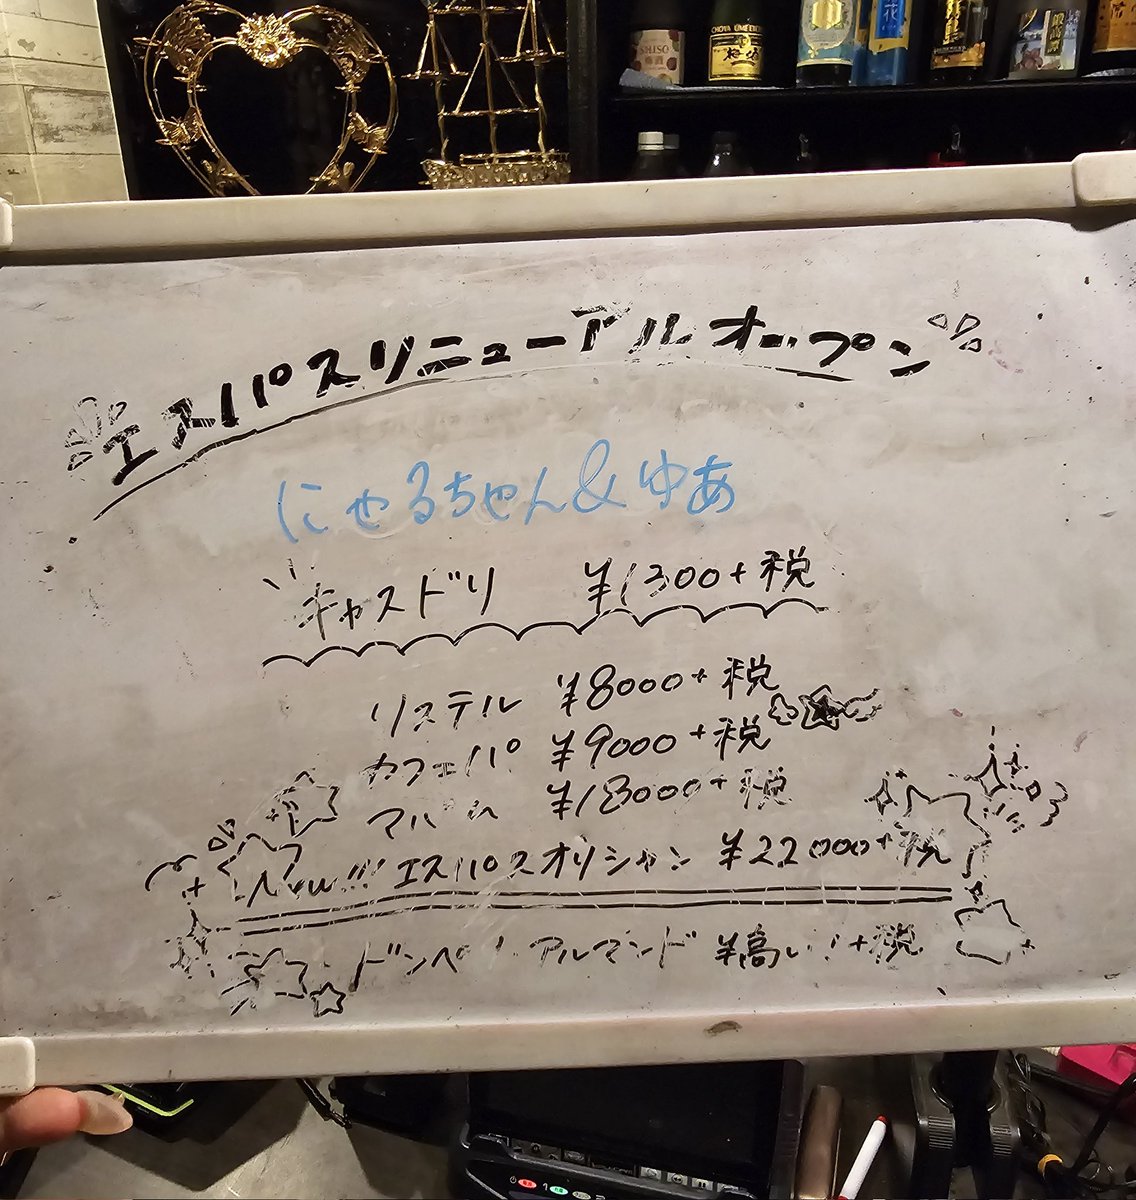 SHISO
CHOYA UMESHU
花
エスパスリニューアルオープン
にゃるちゃん&ゆあ
キャスドリ ¥1300+税
リステル ¥8000+税
カフェパ ¥9000+税
マバム ¥18000+税
New!!! エスパスオリシャン ¥22000+税
ドンペリ アルマンド ¥高い!+税